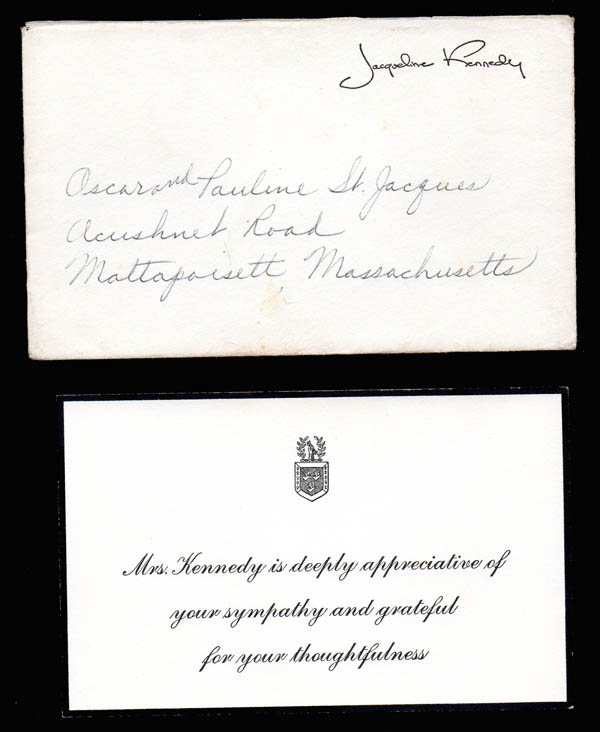 Jacqueline Kennedy
Oscar and Pauline St. Jacques
Acushnet Road
Mattapoisett, Massachusetts
Mrs. Kennedy is deeply appreciative of
your sympathy and grateful
for your thoughtfulness